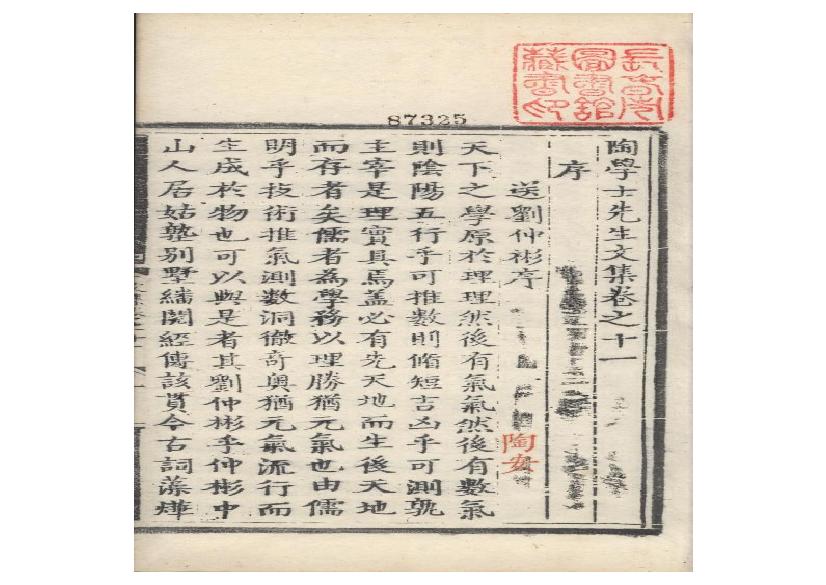 長春市
圖書館
藏書印
87325
陶學士先生文集卷之十一
序
送劉仲彬序
陶安
天下之學原於理理然後有氣氣然後有數氣
則陰陽五行乎可推數則脩短吉凶乎可測孰
主宰是理實具焉盖必有先天地而生後天地
而存者矣儒者為學務以理勝猶元氣也由儒
明乎技術推氣測數洞徹奇奧猶元氣流行而
生成於物也可以與是者其劉仲彬乎仲彬中
山人居姑孰別墅繙閱經傳該貫今古詞藻燁